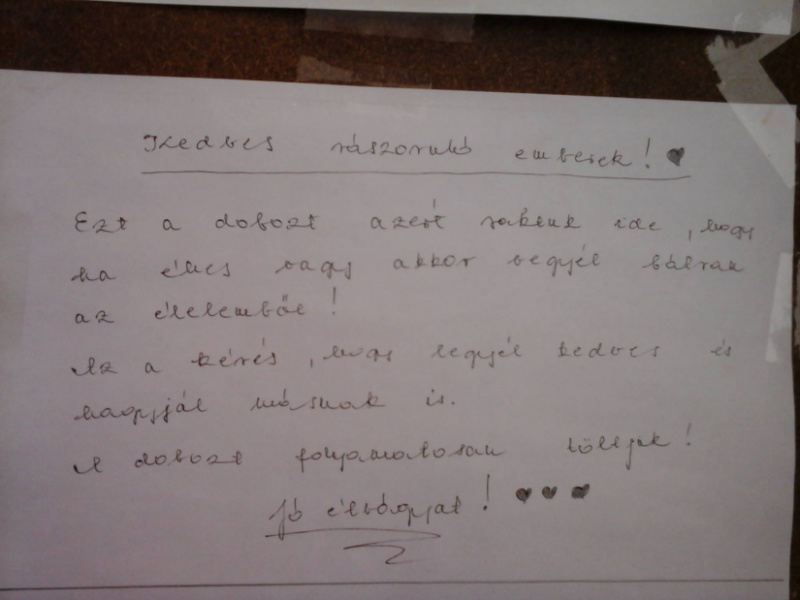 Kedves rászoruló emberek!
Ezt a dobozt azért raktuk ide, hogy
ha éhes vagy akkor vegyél bátran
az élelemből!
Az a kérés, hogy legyél kedves és
hagyjál másnak is.
A dobozt folyamatosan töltjük!
Jó étvágyat!